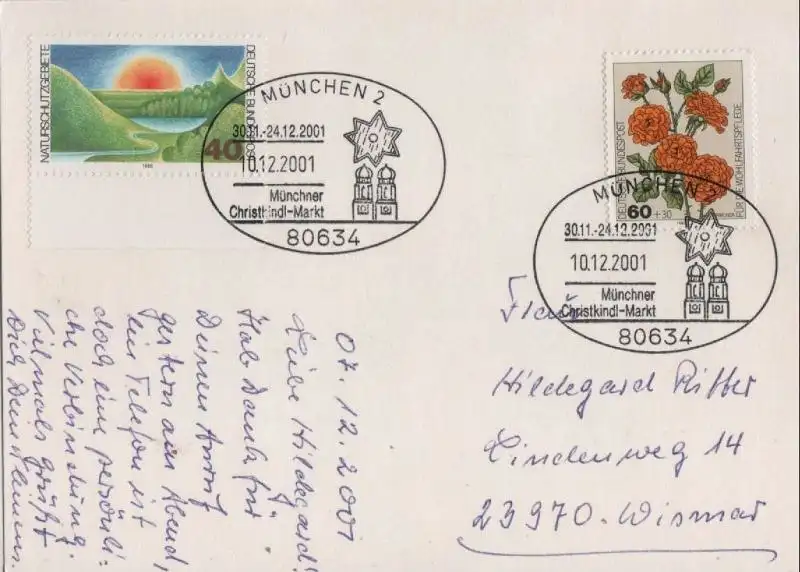 NATURSCHUTZGEBIETE
DEUTSCHE BUNDESPOST
40
1980
MÜNCHEN 2
30.11.-24.12.2001
10.12.2001
Münchner
Christkindl-Markt
80634
DEUTSCHE BUNDESPOST
FÜR DIE WOHLFAHRTSPFLEGE
60 +30
MÜNCHEN 2
30.11.-24.12.2001
10.12.2001
Münchner
Christkindl-Markt
80634
07.12.2001
Liebe Hildegard!
Hab Dank für
Deinen Anruf
gestern am Abend,
ein Telefon ist
doch eine persönli-
che Verbindung.
Vielmals grüßt
Dich Dein
Frau
Hildegard Ritter
Lindenweg 14
23970 Wismar